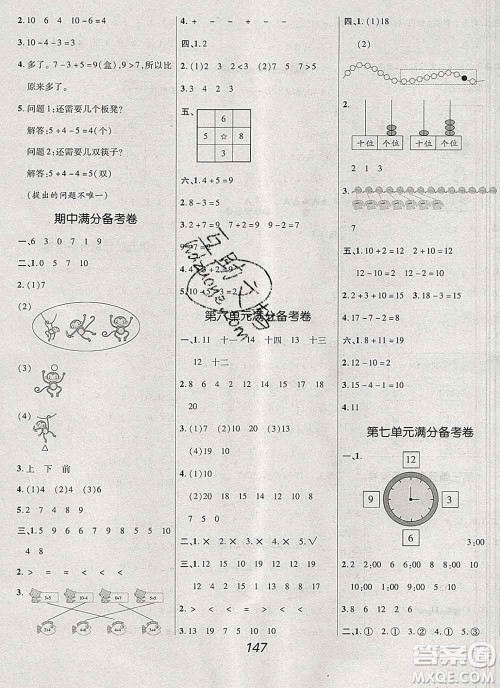 2. 10 6 4 7 10 8
3. 10－4＝6
4. 多了。7－3＋5＝9(盒),9＞7,所以比
原来多了。
5. 问题1:还需要几个板凳?
解答:5＋4－5＝4(个)
问题2:还需要几双筷子?
解答:5＋4－4＝5(双)
(提出的问题不唯一)
期中满分备考卷
一、6 3 0 7 1 9
二、1. 0 5 9 9 6 7
2. (1)
(2)
(3)
(4)
3. 上 下 前
4. (1)4 (2)7
5. ③
三、1. 5 9 9 7 6 8 5 10
2 7 4 8
2. ＞ ＝ ＜ ＜ ＜
3.
4. ＋ － － ＋ － －
四、1. 2
2. (1)5 9 (2)7 9
3. 1
五、
6
5 ☆ 8
9
六、1. 4＋5＝9
2. 2＋7＝9
3.
4.
5.
第六单元满分备考卷
一、1. 11 十一 14 十四 13 十三
12 十二
2. 8 5 7 9 9 16
3. 20
4. (1)3 (2)4 (3)17 (4)15
(5)19
5. 10 15 20 12 18 17
6. 17 10 15
7. 9 10
二、1. × 2. × 3. × 4. × 5. √
三、1. 19 15 12 13 14 18 10 10
7 4 10 5
2. ＞ ＜ ＝ ＜ ＞ ＜
3. 13 19 17 5 10 10
四、1. (1)18
(2)
2.
十位 个位 十位 个位
2 1 3
3.
9
五、1. 10＋2＝12 2＋10＝12
12－10＝2 12－2＝10
2. 10＋8＝18
3. 15－4－1＝10
4. 11
第七单元满分备考卷
一、1.
12
9 3
6
2. 2 2:00 8 8:00 6 6:00
1 1:00 10 10:00 5 5:00
3. ② ③ ①
二、1. ① 2. ① 3. ② 4. ①
147
答案圈
MXQE.COM